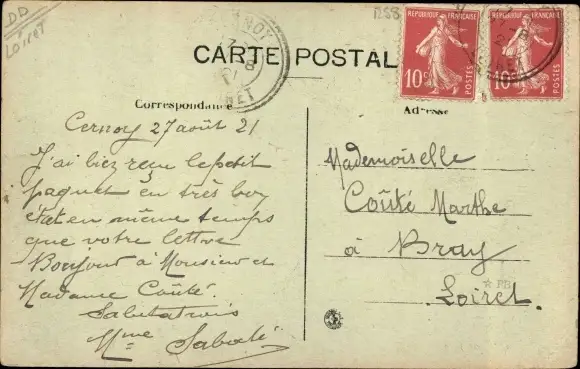 DD
Loiret
1288
CARTE POSTALE
REPUBLIQUE FRANÇAISE
10c
POSTES
REPUBLIQUE FRANÇAISE
10c
POSTES
Correspondance
Cernoy 27 août 21
J'ai bien reçu le petit
paquet en très bon
état en même temps
que votre lettre
Bonjour à Monsieur et
Madame Coûté.
Salutations
Mme Sabaté
Adresse
Mademoiselle
Coûté Marthe
à Bray
Loiret.